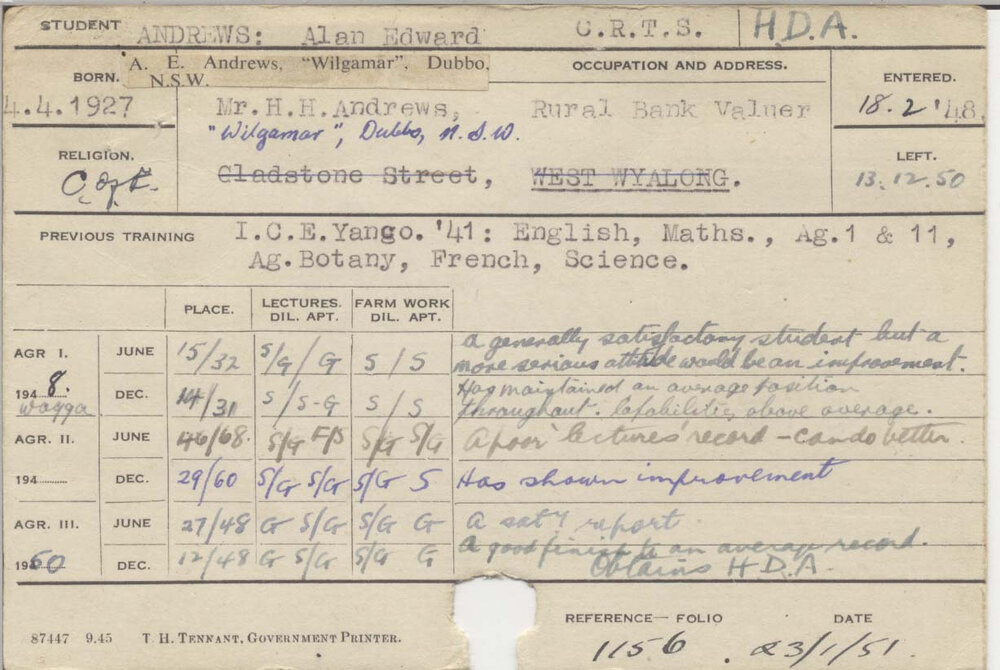 STUDENT ANDREWS: Alan Edward C.R.T.S. H.D.A.
A. E. Andrews, "Wilgamar", Dubbo,
N.S.W.
BORN. OCCUPATION AND ADDRESS. ENTERED.
4.4.1927 Mr.H.H.Andrews, Rural Bank Valuer 18.2.'48.
"Wilgamar", Dubbo, N.S.W.
RELIGION. LEFT.
C of E. Gladstone Street, WEST WYALONG. 13.12.50
PREVIOUS TRAINING I.C.E.Yango. '41: English, Maths., Ag.1 & 11,
Ag.Botany, French, Science.
PLACE. LECTURES. DIL. APT. FARM WORK DIL. APT.
AGR I. JUNE 15/32 S/G / G S / S A generally satisfactory student but a
more serious attitude would be an improvement.
1948. Wagga DEC. 14/31 S / S-G S / S Has maintained an average position
throughout. Capabilities above average.
AGR. II. JUNE 46/68. S/G F/S S/G S/G A poor 'lectures' record - can do better.
194 DEC. 29/60 S/G S/G S/G S Has shown improvement
AGR. III. JUNE 27/48 G S/G S/G G A saty report
1950 DEC. 12/48 G S/G S/G G A good finish to an average record.
Obtains H.D.A.
REFERENCE— FOLIO DATE
87447 9.45 T. H. TENNANT, GOVERNMENT PRINTER. 1156. 23/1/51.